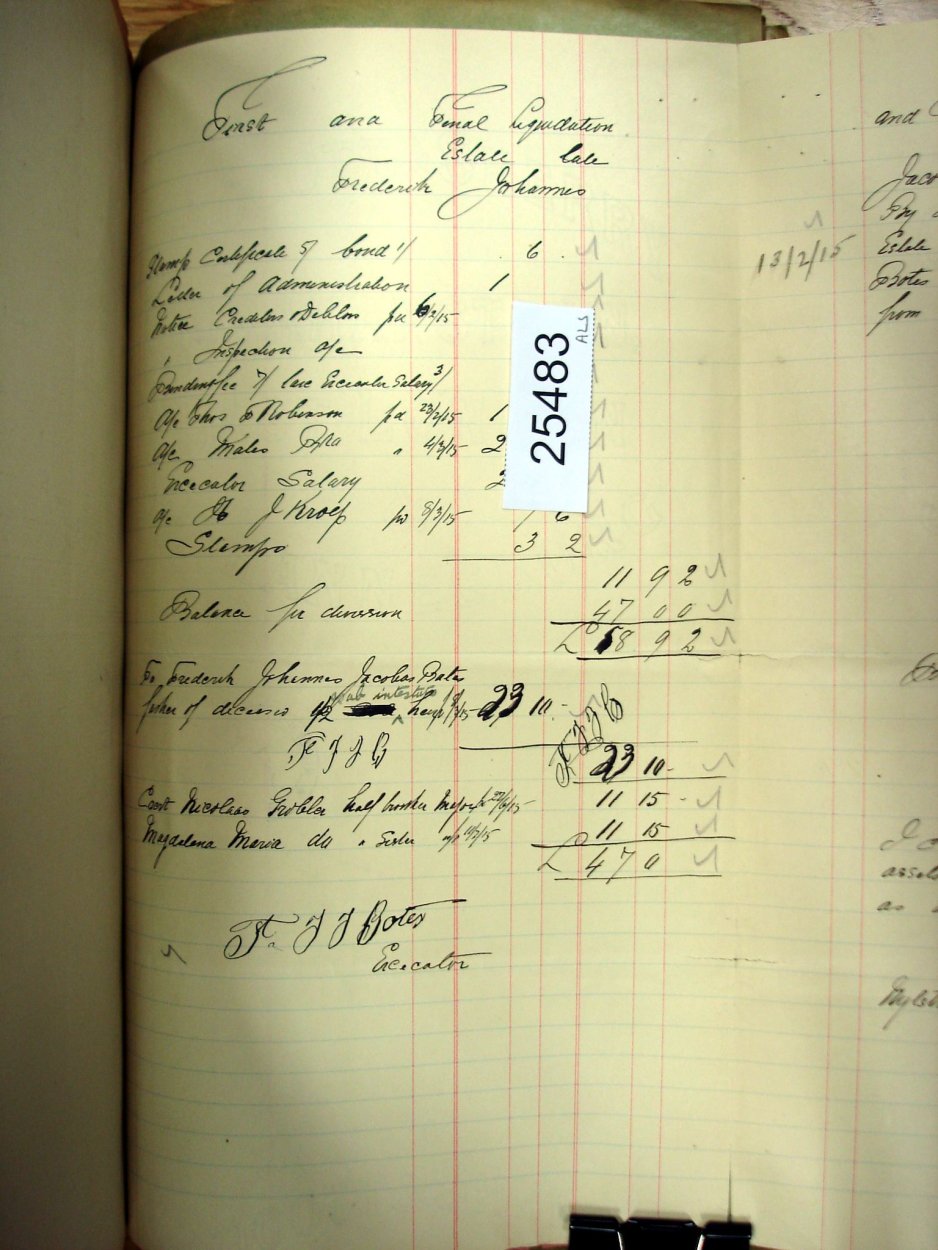 First and Final Liquidation
Estate late
Frederik Johannes
Stamp Certificate 5/ bond 1/ 6
Letter of Administration 1
Notice Creditors & Debtors pd 6/3/15
" Inspection a/c
7/ late Executor Salary 3/
a/c Thos Robinson pd 23/2/15 1
a/c Males " 4/3/15 2
Executor Salary 2
a/c J Kroep pd 8/3/15 1 6
Stamps 3 2
11 9 2
Balance for division 47 0 0
£ 58 9 2
To Frederik Johannes Jacobus Botes
ab intestato
father of deceased 1/2 heir 23 10 -
F J J B
F J J B
23 10 -
Coert Nicolaas Grobler half brother Major 11 15 -
Magdalena Maria do " Sister 11 15
£ 47 0
F. J J Botes
Executor
25483
ALS
and
Jaco
By
13/2/15 Estate
Botes
from
assets
as